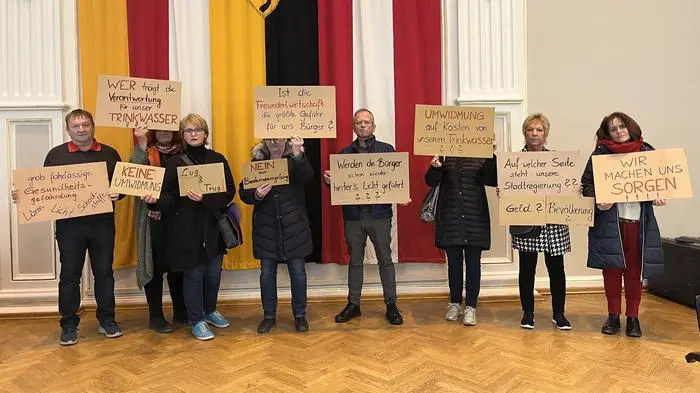 grob fahrlässige
Gesundheits-
gefährdung
Lärm Licht Schadstoffe
WER trägt die
Verantwortung
für unser
TRINKWASSER
KEINE
UMWIDMUNG
Lug
&
Trug
NEIN
zur
Ist die
Freunderlwirtschaft
die größte Gefahr
für uns Bürger
?
Werden die Bürger
wieder
hinter's Licht geführt
? ? ?
UMWIDMUNG
auf Kosten von
unserem Trinkwasser
? ? ?
Auf welcher Seite
steht unsere
Stadtregierung ??
Geld ? Bevölkerung
?
WIR
MACHEN UNS
SORGEN
!!!!